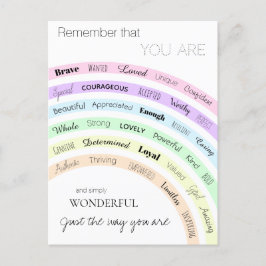 Remember that
YOU ARE
Brave WANTED Loved Unique Confident
Special COURAGEOUS ACCEPTED Worthy
beautiful Appreciated Enough RESILIENT Caring
Whole Strong LOVELY Powerful Kind BOLD
GENUINE Determined Loyal Valued
Authentic Thriving EMPOWERED Limitless INSPIRING Amazing
and simply
WONDERFUL
Just the way you are